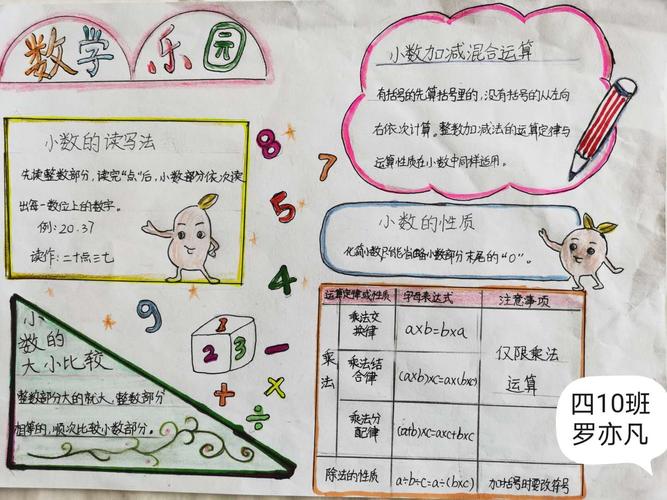 数学乐园
小数的读写法
先读整数部分,读完“点”后,小数部分依次读
出每一数位上的数字。
例:20.37
读作:二十点三七
小数加减混合运算
有括号的先算括号里的,没有括号的从左向
右依次计算。整数加减法的运算定律与
运算性质在小数中同样适用。
8
7
5
4
9
小数的性质
化简小数只能省略小数部分末尾的“0”。
小
数
的
大小比较
整数部分大的就大,整数部分
相等的,顺次比较小数部分。
1
2 3
− + × ÷
运算定律或性质 字母表达式 注意事项
乘法
乘法交
换律
a×b=b×a
乘法结
合律
(a×b)×c=a×(b×c)
仅限乘法
运算
乘法分
配律
(a+b)×c=a×c+b×c
除法的性质 a÷b÷c=a÷(b×c) 加括号时要改符号
四10班
罗亦凡